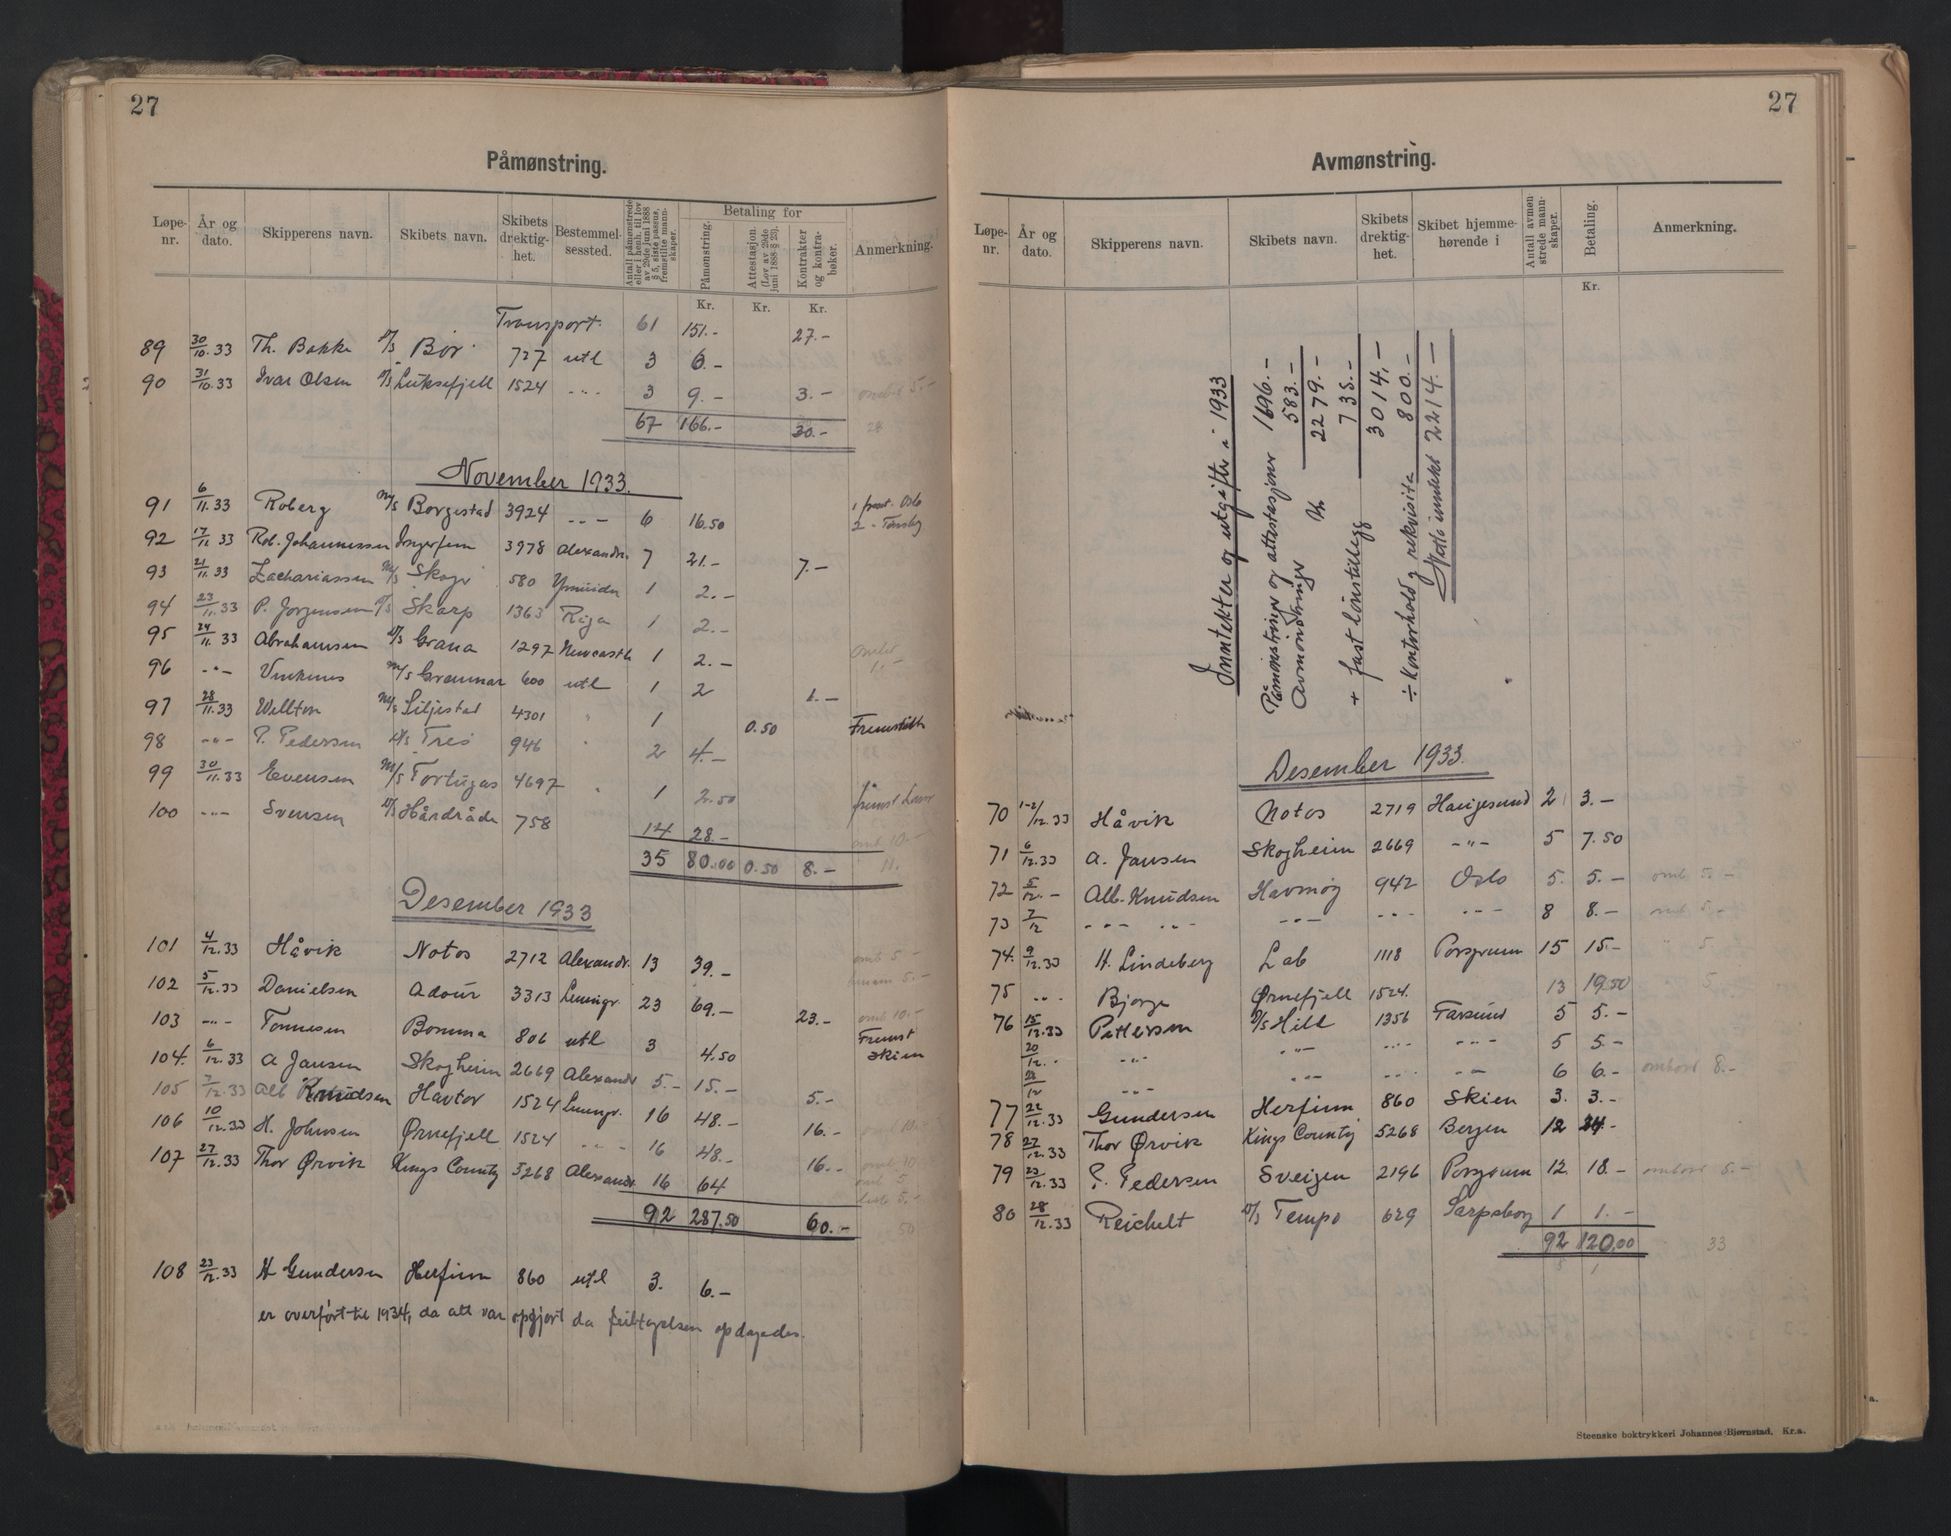 27
Påmønstring.
Løpe-nr. År og dato. Skipperens navn. Skibets navn. Skibets drektig-het. Bestemmel-sessted. Antall påmønstrede eller i henh. til lov av 29de juni 1888 § 5, siste passus, fremstilte mann-skaper. Betaling for Påmønstring. Attestasjon. (Lov av 29de juni 1888 § 23). Kontrakter og kontra-bøker. Anmerkning.
Kr. Kr. Kr.
Transport. 61 151.- 27.-
89 30/10.33 Th. Bakke D/S Bør 727 utl 3 6.-
90 31/10.33 Ivar Olsen D/S Luksefjell 1524 -"- 3 9.- 3.- ombt 5.-
67 166.- 30.- 28
November 1933.
91 6/11.33 Roberg M/S Borgestad 3924 -"- 6 16.50 1 fremst. Oslo 2 - Tønsbg
92 17/11 33 Rob. Johannessen Ingerfem 3978 Alexandr. 7 21.- 7.-
93 21/11.33 Zachariassen M/S Skogr 580 Ymuiden 1 2.-
94 23/11.33 P. Jørgensen D/S Skarp 1363 Riga 1 2.-
95 24/11.33 Abrahamsen D/S Grana 1297 Newcastle 1 2.- ombt 1.-
96 -"- Vinknes M/S Grannar 600 utl 1 2 1.-
97 28/11.33 Wellton M/S Liljestad 4301 " 1 0.50 Fremstillt
98 -"- P. Pedersen D/S Treo 946 " 2 4.-
99 30/11.33 Evensen M/S Tortugas 4697 " 1 2.50 fremst Larv
100 -"- Svensen D/S Hårdråde 758 14 28.- omb 10.-
35 80.00 0.50 8.- 11.
Desember 1933
101 4/12.33 Håvik Notos 2712 Alexandr. 13 39.- omb 5.-
102 5/12.33 Danielsen Adour 3313 Leningr. 23 69.- 23.- 5.-
103 -"- Tønnesen Bomma 806 utl 3 4.50 omb 10.- Fremst Skien
104. 6/12.33 A Jansen Skogheim 2669 Alexandr 5.- 15.- 5.-
105 7/12.33 Alb Knudsen Havtor 1524 Leningr. 16 48.- 16.- 10.-
106 10/12.33 H. Johnsen Ørnefjell 1524 -"- 16 48.- 16.- omb 10.-
107 27/12.33 Thor Ørvik Kings County 5268 Alexandr. 16 64 omb 5 5.-
92 287.50 60.- 50
108 23/12.33 H Gundersen Herfinn 860 utl 3. 6.-
er overført til 1934, da alt var opgjort da feiltagelsen opdagedes.
27
Avmønstring.
Løpe-nr. År og dato. Skipperens navn. Skibets navn. Skibets drektig-het. Skibet hjemme-hørende i Antall avmøn strede mann-skaper. Betaling. Anmerkning.
Kr.
Inntekter og utgifter i 1933
Påmønstringer og attestasjoner 1696.-
Avmønstringer 583.-
Kr 2279.-
+ fast lønstillegg 735.-
3014,-
÷ Kontorhold og rekvisita 800.-
Netto inntekt 2214.-
Desember 1933.
70 1-2/12.33 Håvik Notos 2719 Haugesund 2 3.-
71 6/12.33 A. Jansen Skogheim 2669 -"- 5 7.50
72 5/12.- Alb. Knudsen Havmøy 942 Oslo 5. 5.- omb 5.-
73 7/12 -"- -"- -"- -"- -"- 8 8.- omb 5.-
74. 9/12.33 H. Lindeberg Lab 1118 Porsgrunn 15 15.- " 5.-
75 -"- Bjørge Ørnefjell 1524. 13 19.50 " 5.
76 15/12.33 Pettersen D/S Hill 1356 Farsund 5 5.-
20/12.. -"- -"- -"- -"- 5 5.-
22/12 -"- -"- -"- -"- 6 6.- ombord 8.-
77 22/12.33 Gundersen Herfinn 860 Skien 3. 3.-
78 27/12.33 Thor Ørvik Kings County 5268 Bergen 12 24.-
79 23/12.33 P. Pedersen Sveigen 2196 Porsgrunn 12. 18.- ombord 5.-
80 28/12.33 Reichelt D/S Tempo 629 Sarpsborg 1 1.-
92 120.00 33
Steenske boktrykkeri Johannes Bjørnstad. Kr.a.